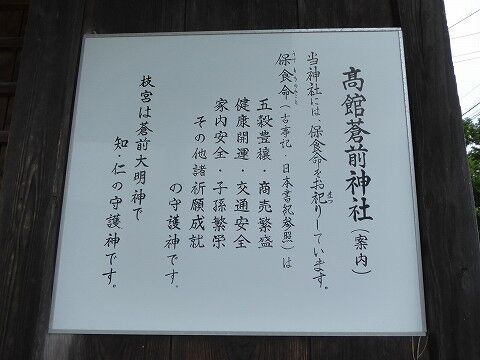 高館蒼前神社（案内）
当神社には、保食命をお祀りしています。
まつ
保食命（古事記・日本書紀参照）は
うけもちのみこと
五穀豊穣・商売繁盛
健康開運・交通安全
家内安全・子孫繁栄
その他諸祈願成就
の守護神です。
枝宮は蒼前大明神で
知・仁の守護神です。